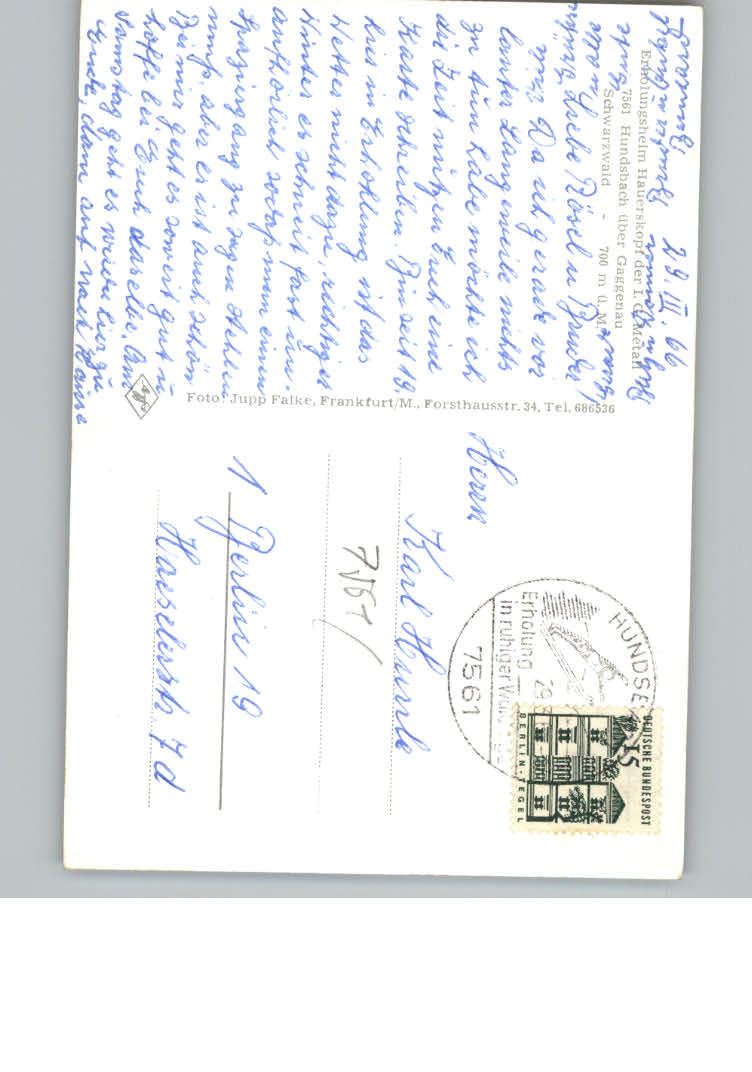 Erholungsheim Hauerskopf der I. G. Metall
7561 Hundsbach über Gaggenau
Schwarzwald - 700 m ü. M.
29. III. 66
Liebe Rösel u Bruder!
Da ich gerade vor
lauter Langeweile nichts
zu tun habe möchte ich
die Zeit nützen Euch eine
Karte schreiben. Bin seit 18
hier in Erhohlung ist das
Wetter nicht dazu, richtiger
Winter es schneit fast un-
aufhörlich sodaß man einen
Spaziergang zu sagen stehlen
muß, aber es ist auch schön
Bei mir geht es soweit gut u
hoffe bei Euch dasselbe. Am
Samstag geht es wieder hier zu
Ende, dann auf nach Hause
Foto: Jupp Falke, Frankfurt/M., Forsthausstr. 34, Tel. 686536
Herrn
Karl
1 Berlin 19
7d
HUNDSE
Erholung
in ruhiger
7561
DEUTSCHE BUNDESPOST
15
BERLIN-TEGEL